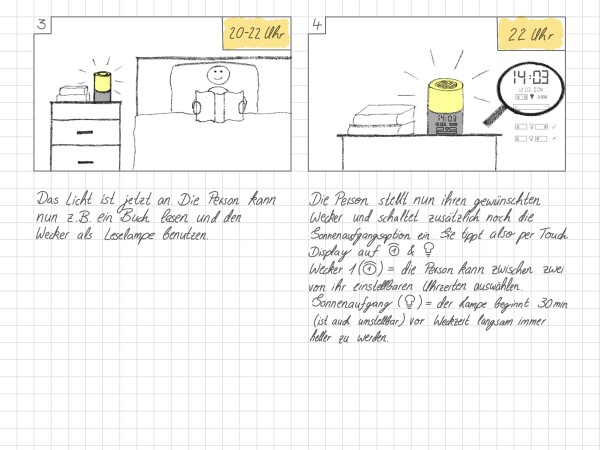 3
20-22 Uhr
Das Licht ist jetzt an. Die Person kann
nun z.B. ein Buch lesen und den
Wecker als Leselampe benutzen.
4
22 Uhr
14:03
14:03
Die Person stellt nun ihren gewünschten
Wecker und schaltet zusätzlich noch die
Sonnenaufgangsoption ein. Sie tippt also per Touch
Display auf ① &
Wecker 1 (①) = die Person kann zwischen zwei
von ihr einstellbaren Uhrzeiten auswählen.
Sonnenaufgang () = der Lampe beginnt 30 min
(ist auch umstellbar) vor Weckzeit langsam immer
heller zu werden.